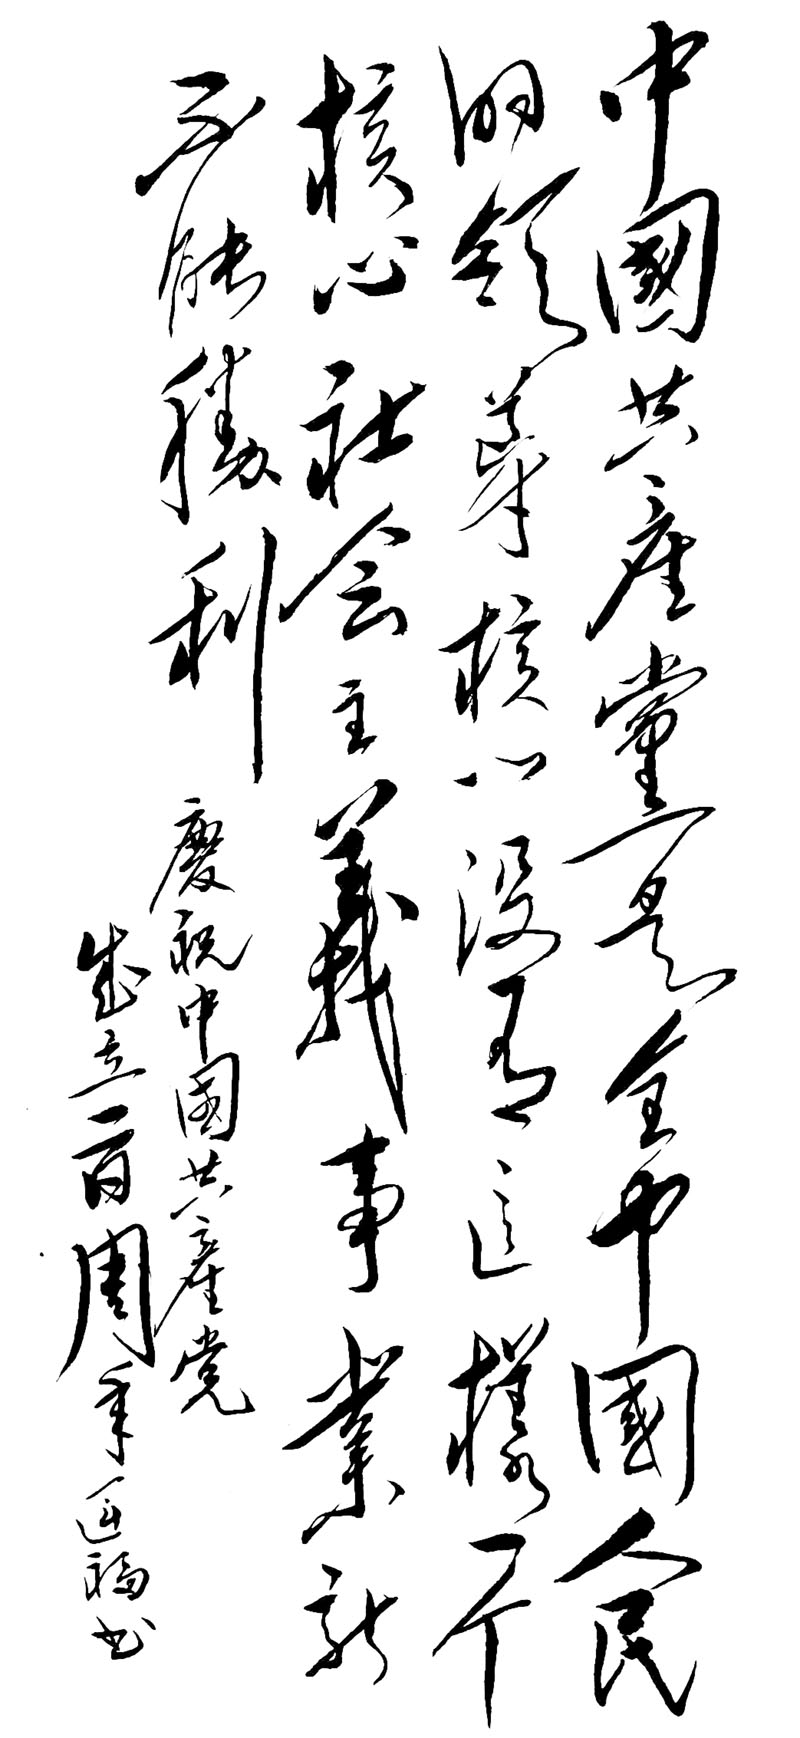 中國共產黨是全中國人民
的領導核心没有這樣一个
核心社会主義事業就
不能勝利
慶祝中國共產党
成立一百周年 运福书